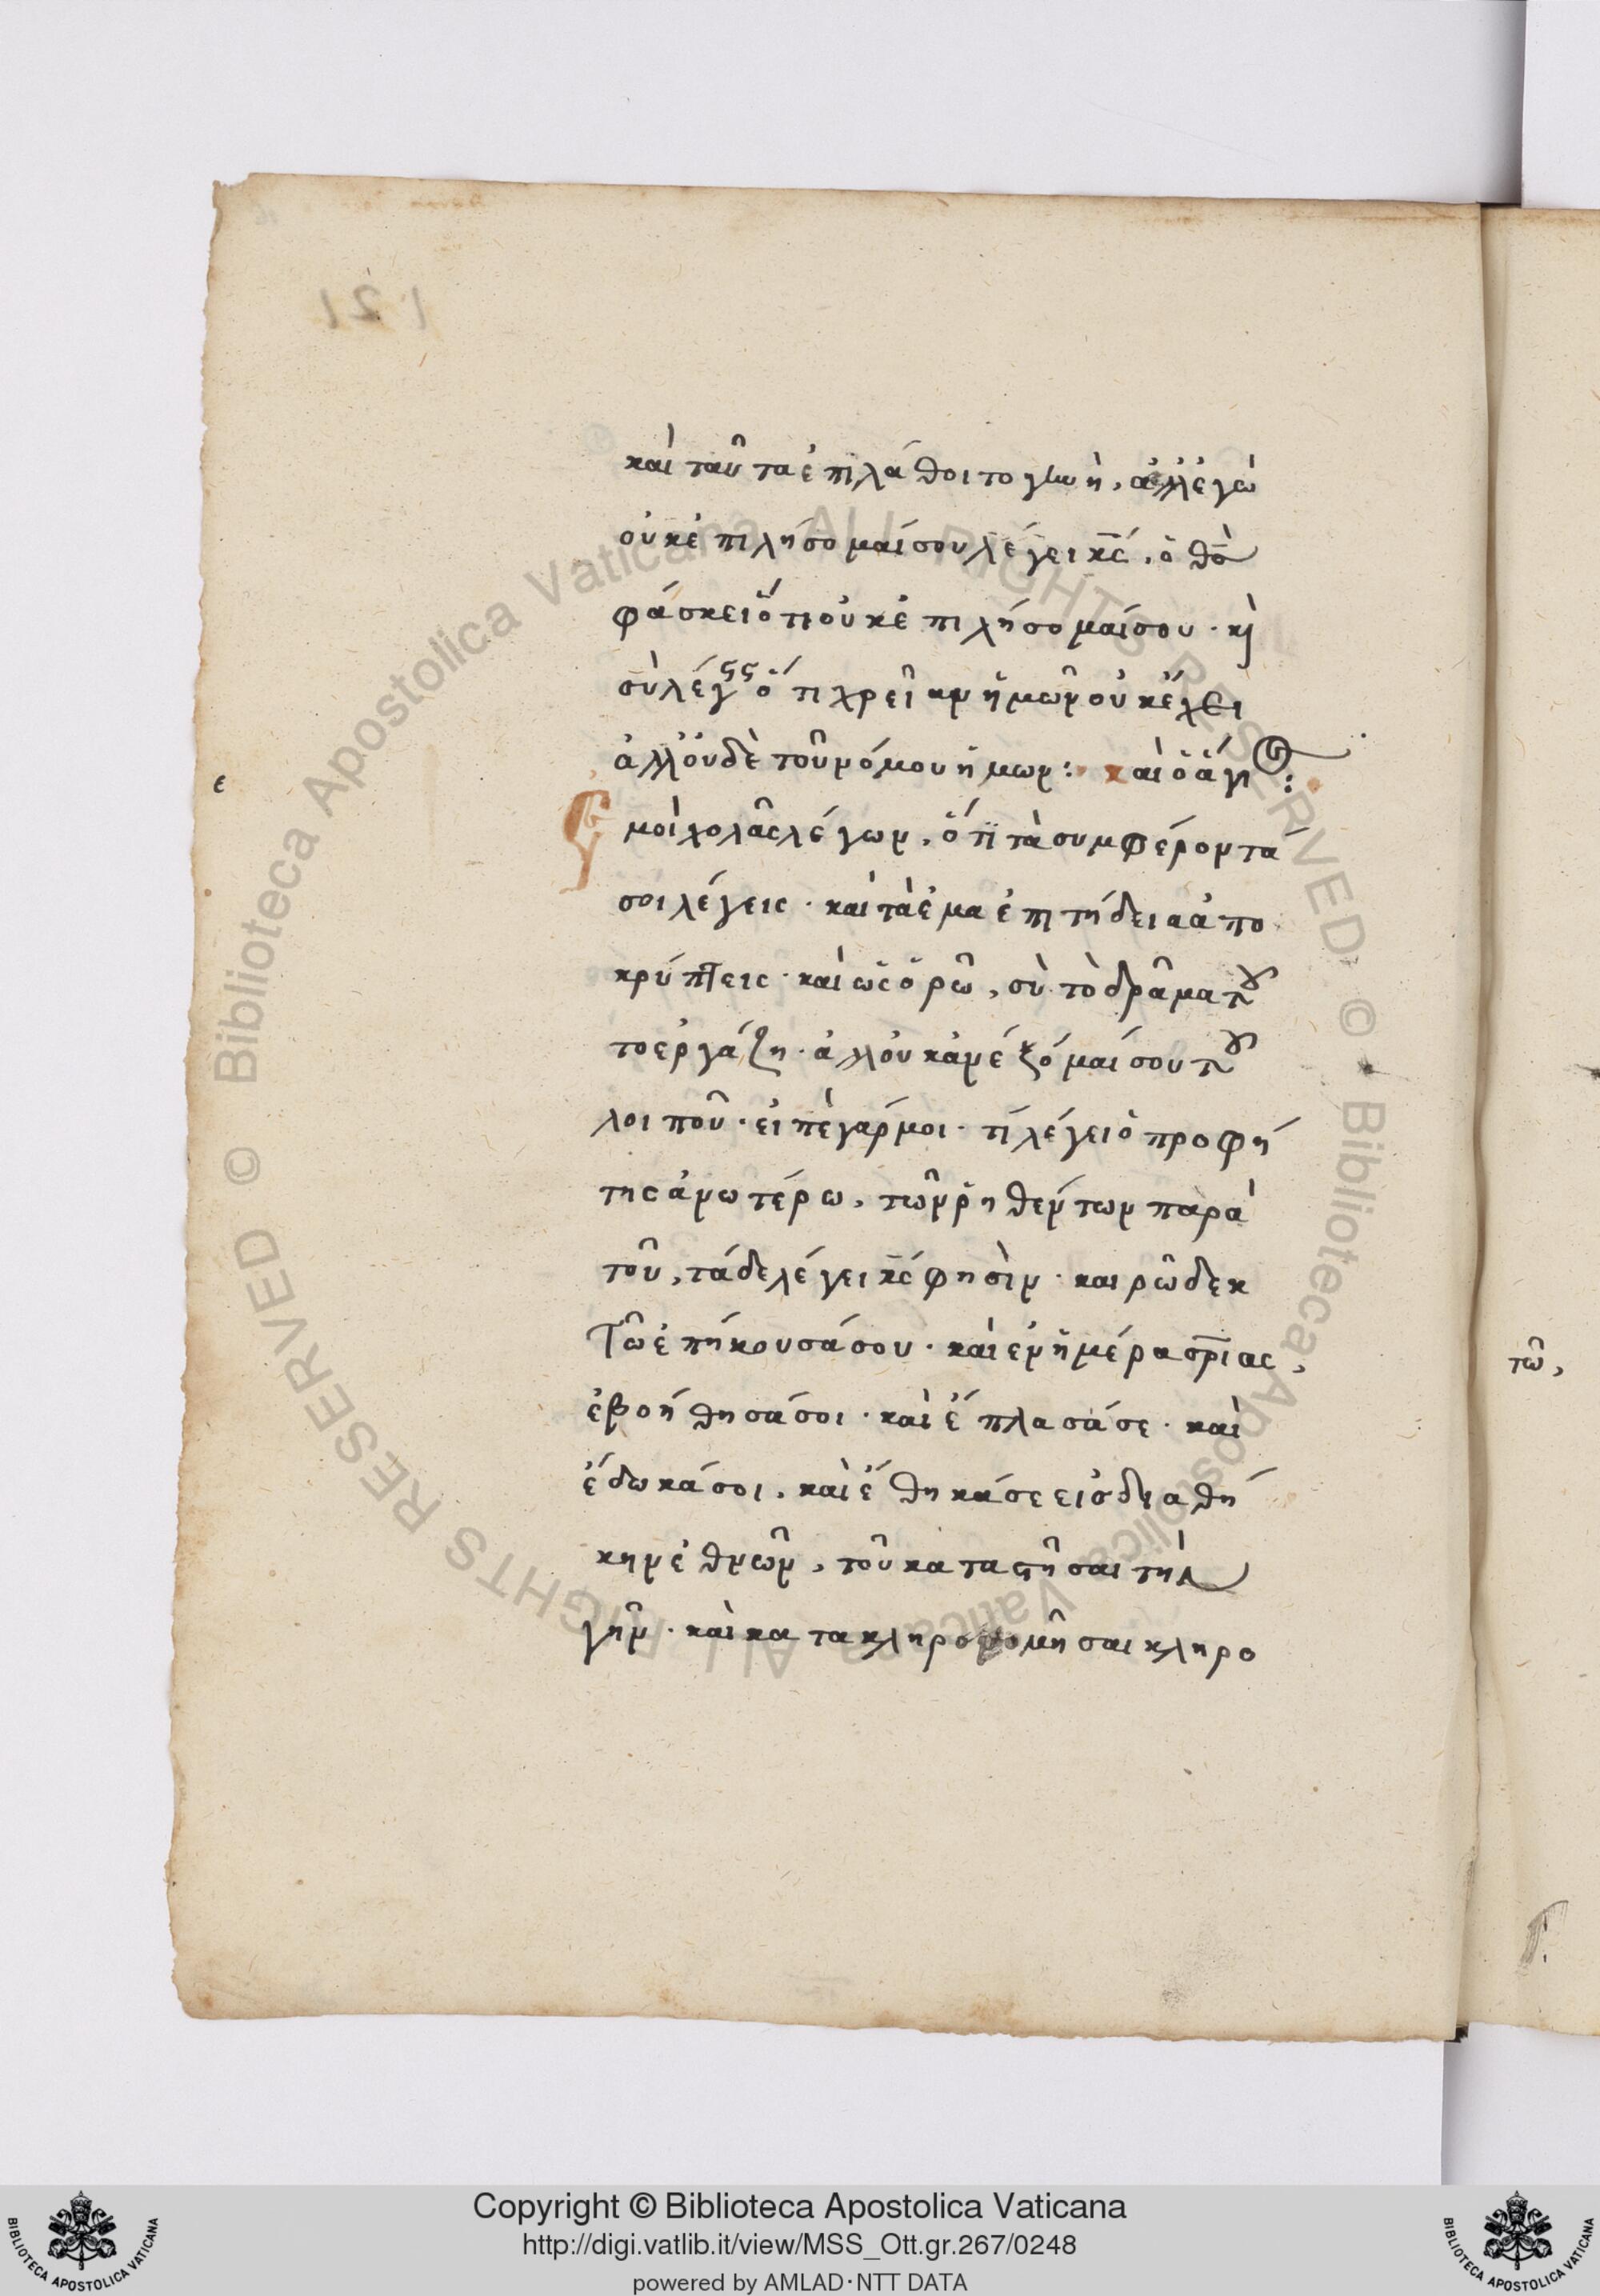 121
καὶ ταῦτα ἐπιλάθοιτο γυνὴ, ἀλλ' ἐγὼ
οὐκ ἐπιλήσομαί σου λέγει κ̅ς̅. ὁ θ̅ς̅
φάσκει ὅτι οὐκ ἐπιλήσομαί σου · κ̀
σὺ λέγεις ὅτι χρεῖαν ἡμῶν οὐκ ἔχει
ἀλλ' οὐδὲ τοῦ νόμου ἡμων: καὶ ὁ ἅγιος:
ε
μοὶ χολᾶς λέγων, ὅτι τὰ συμφέροντά
σοι λέγεις · καὶ τὰ ἐμα ἐπιτήδεια ἀπο
κρύπτεις · καὶ ὡς ὁρῶ, σὺ τὸ δρᾶμα τοῦ
το ἐργάζη · ἀλλ' οὐκ ἀνέξομαί σου τοῦ
λοιποῦ · εἰπὲ γάρ μοι · τί λέγει ὁ προφή
της ἀνωτέρω, τῶν ῥηθέντων παρὰ
τοῦ, τάδε λέγει κ̅ς̅ φησὶν · καιρῶ δεκ
τῶ ἐπήκουσά σου · καὶ ἐν ἡμέρα σ̅ρ̅ιας,
ἐβοήθησά σοι · καὶ ἔπλασά σε · καὶ
ἔδωκά σοι, καὶ ἔθηκά σε εἰς διαθή
κην ἐθνῶν, τοῦ καταστῆσαι τὴν
γῆν · καὶ κατακληρονομῆσαι κληρο
τῶ,
© Biblioteca Apostolica Vaticana ALL RIGHTS RESERVED © Biblioteca Apostolica Vaticana ALL RIGHTS RESERVED
Copyright © Biblioteca Apostolica Vaticana
http://digi.vatlib.it/view/MSS_Ott.gr.267/0248
powered by AMLAD·NTT DATA
BIBLIOTECA APOSTOLICA VATICANA
BIBLIOTECA APOSTOLICA VATICANA